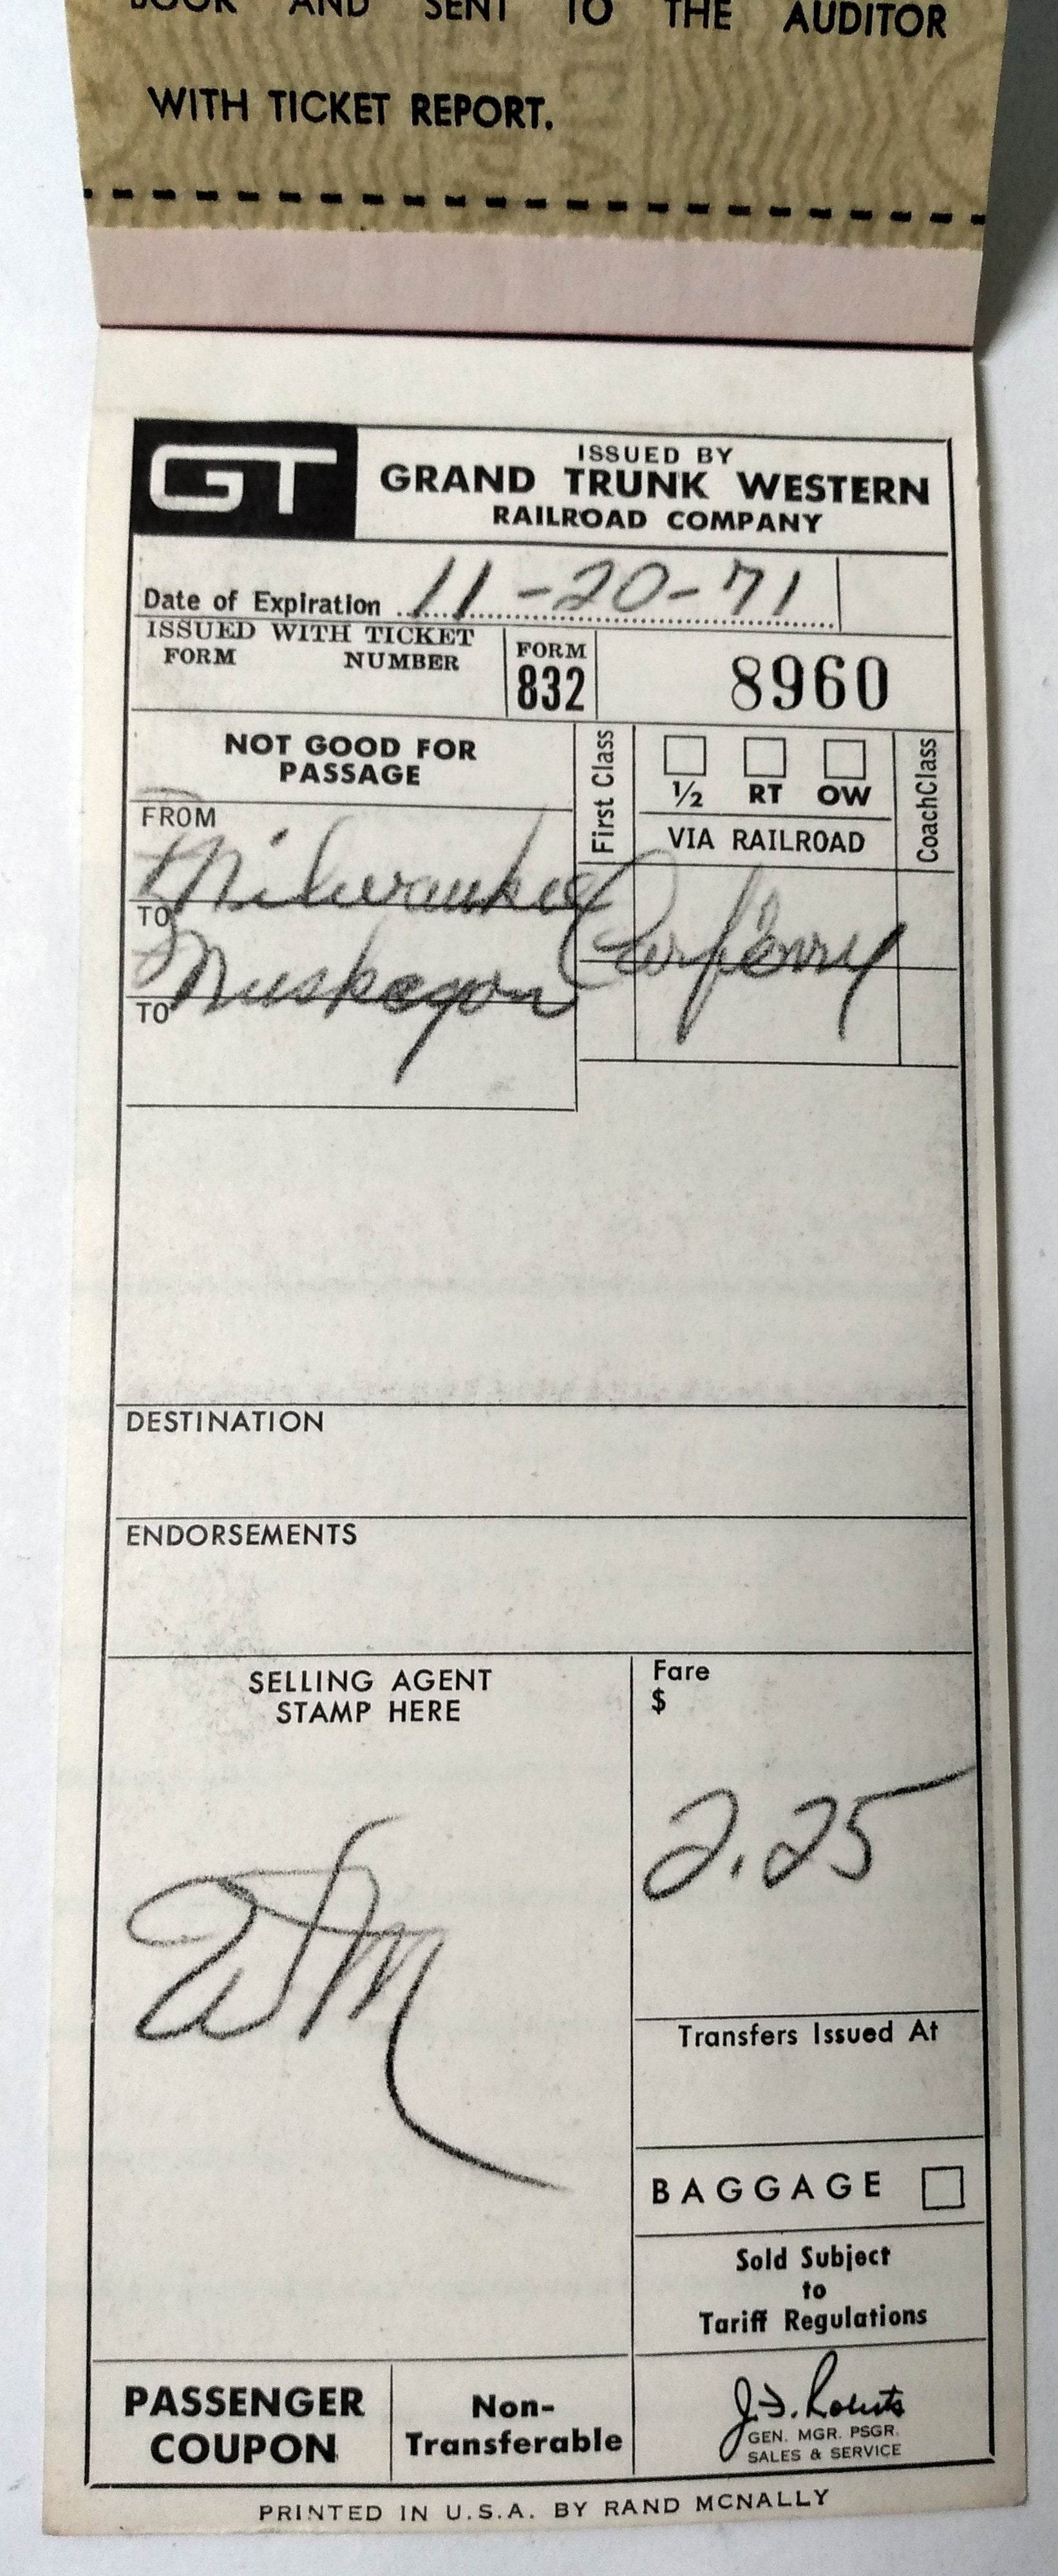 BOOK AND SENT TO THE AUDITOR
WITH TICKET REPORT.
GT
ISSUED BY
GRAND TRUNK WESTERN
RAILROAD COMPANY
Date of Expiration 11-20-71
ISSUED WITH TICKET
FORM NUMBER
FORM
832
8960
NOT GOOD FOR
PASSAGE
First Class
1/2 RT OW
VIA RAILROAD
CoachClass
FROM
Milwaukee
TO
Muskegon
TO
Carferry
DESTINATION
ENDORSEMENTS
SELLING AGENT
STAMP HERE
Fare
$
2.25
Transfers Issued At
BAGGAGE
Sold Subject
to
Tariff Regulations
PASSENGER
COUPON
Non-
Transferable
GEN. MGR. PSGR.
SALES & SERVICE
PRINTED IN U.S.A. BY RAND MCNALLY